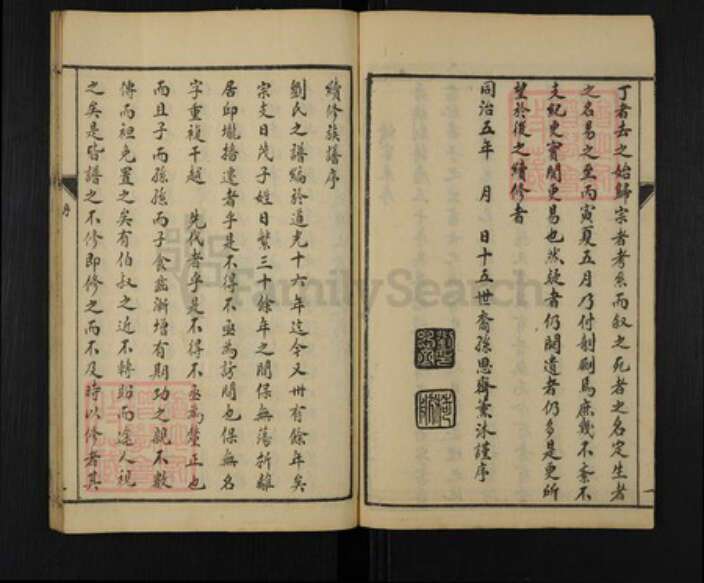 丁者去之始歸宗者考系而叙之死者之名定生者
之名易之至丙寅夏五月乃付剞劂焉庶幾不紊不
支紀更實開更易也然疑者仍闕遺者仍多是更所
望於後之續修者
同治五年 月 日十五世裔孫思齊薰沐謹序
續修族譜序
劉氏之譜編於道光十六年迄今又卅有餘年矣
宗支日茂子姓日繁三十餘年之間保無蕩折離
居邱壠播遷者乎是不得不亟為訪問也保無名
字重複干越 先代者乎是不得不亟為釐正也
而且子而孫孫而子食齒漸增有期功之親不數
傳而袒免置之矣有伯叔之近不轉盼而途人視
之矣是皆譜之不修即修之而不及時以修者其
序
FamilySearch